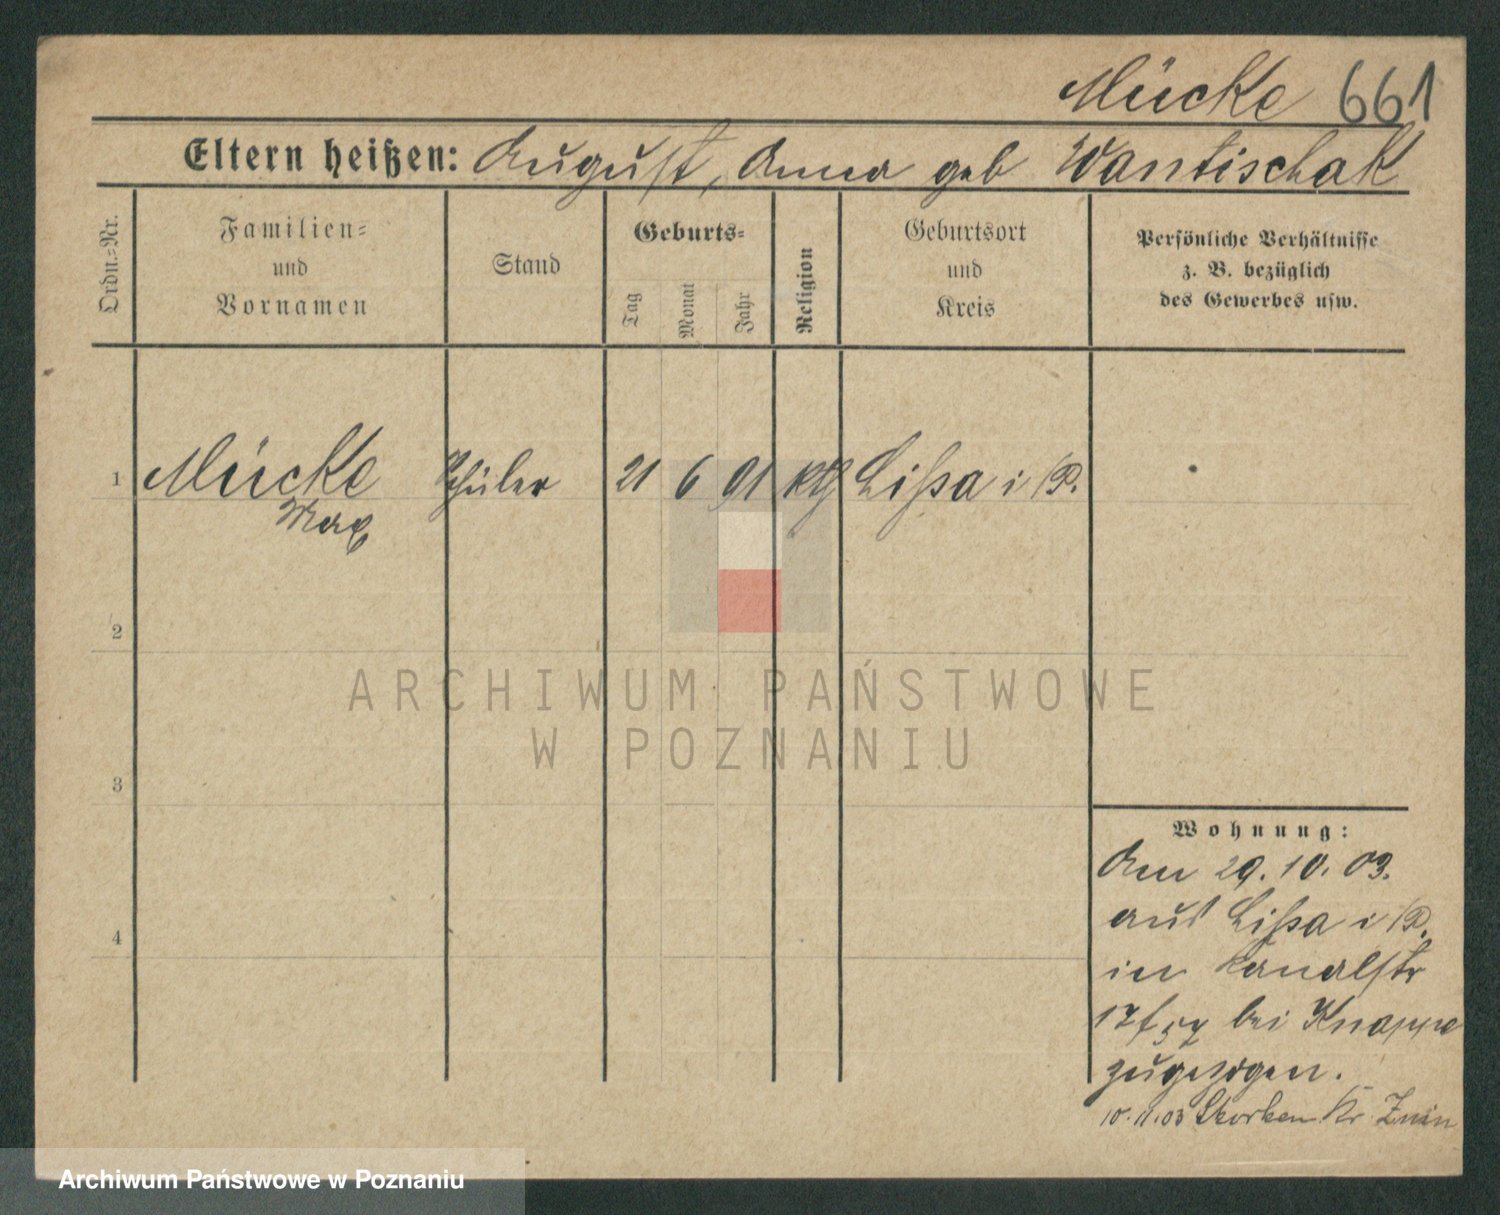 Mücke 661
Eltern heißen: August, Anna geb Wantischak
Ordn.-Nr.
Familien-
und
Vornamen
Stand
Geburts-
Tag
Monat
Jahr
Religion
Geburtsort
und
Kreis
Persönliche Verhältnisse
z. B. bezüglich
des Gewerbes usw.
1 Mücke Schüler 21 6 91 kth Lissa i/P.
Max
2
3
4
ARCHIWUM PAŃSTWOWE
W POZNANIU
Wohnung:
Am 29.10.03.
aus Lissa i/P.
in Kanalstr
17 bei Knappe
zugezogen.
10.11.03 Kr. Znin
Archiwum Państwowe w Poznaniu